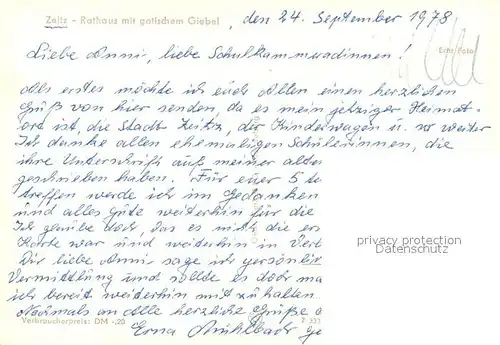 Zeitz - Rathaus mit gotischem Giebel, den 24. September 1978
Echt Foto
Liebe Anni, liebe Schulkammeradinnen!
Als erstes möchte ich euch Allen einen herzlichen
Gruß von hier senden, da es mein jetziger Heimat-
ort ist, die Stadt Zeitz, der Kinderwagen u. so weiter
Ich danke allen ehemaligen Schülerinnen, die
ihre Unterschrift auf meiner alten
geschrieben haben. Für euer 5 te
treffen werde ich im Gedanken
und alles Gute weiterhin für die
Ich glaube doch, das es nicht die er
Karte war und weiterhin in Verb
Dir liebe Anni sage ich persönlic
privacy protection
Datenschutz
Vermittlung und sollte es doch ma
ich bereit weiterhin mit zu halten
Nochmals an Alle herzliche Grüße
Verbraucherpreis: DM -,20
Erna Mühlbach ge